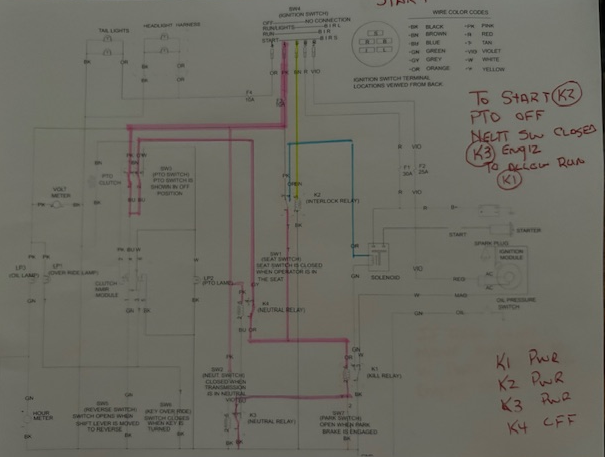 START
SW4
(IGNITION SWITCH)
OFF NO CONNECTION
RUN/LIGHTS B I R L
RUN B I R
START B I R S
WIRE COLOR CODES
BK BLACK PK PINK
BN BROWN R RED
BU BLUE T TAN
GN GREEN VIO VIOLET
GY GREY W WHITE
OR ORANGE Y YELLOW
IGNITION SWITCH TERMINAL
LOCATIONS VIEWED FROM BACK.
TAIL LIGHTS
HEADLIGHT HARNESS
BK OR BK OR
OR PK BN R VIO
F4
15A
TO START K2
PTO OFF
NEUT SW CLOSED
K3 ENGIZ
TO ALLOW RUN
K1
PTO
CLUTCH
SW3
(PTO SWITCH)
PTO SWITCH IS
SHOWN IN OFF
POSITION
VOLT
METER
K2
(INTERLOCK RELAY)
F1
30A
F2
25A
SW1
(SEAT SWITCH)
SEAT SWITCH IS CLOSED
WHEN OPERATOR IS IN
THE SEAT
SOLENOID
START
STARTER
SPARK PLUG
IGNITION
MODULE
LP3
(OIL LAMP)
LP1
(OVER RIDE LAMP)
CLUTCH
MODULE
LP2
(PTO LAMP)
K4
(NEUTRAL RELAY)
BU OR
RED
AC
AC
MAG
OIL
OIL PRESSURE
SWITCH
SW2
(NEUT. SWITCH)
CLOSED WHEN
TRANSMISSION
IS IN NEUTRAL
K1
(KILL RELAY)
K1 PWR
K2 PWR
K3 PWR
K4 OFF
HOUR
METER
SW5
(REVERSE SWITCH)
SWITCH OPENS WHEN
SHIFT LEVER IS MOVED
TO REVERSE
SW6
(KEY OVER RIDE)
SWITCH CLOSES
WHEN KEY IS
TURNED
K3
(NEUTRAL RELAY)
SW7
(PARK SWITCH)
OPEN WHEN PARK
BRAKE IS ENGAGED